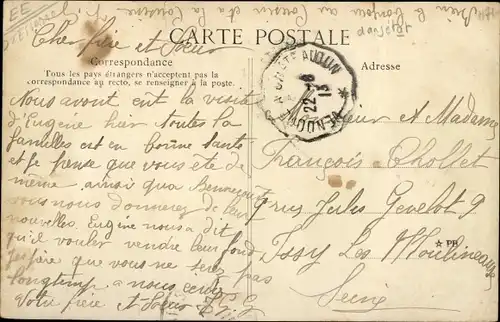 Bien le bonjour au Cousin et a la Cousine
CARTE POSTALE
Cher frère et Sœur
Correspondance
Tous les pays étrangers n'acceptent pas la
correspondance au recto, se renseigner à la poste.
Adresse
22
Nous avont eut la visite
d'Eugène hier toutes la
familles est en bonne santé
et je pense que vous ete de
même, ainsi qua
vous nous donnerez de leur
nouvelles. Eugène nous a dit
qu'il vouler vendre leur fond
J'espère que vous ne serez pas
longtemp a nous
Votre frère et Sœur
et Madame
François Chollet
9 rue Jules Gevelot 9
Issy Les Moulineaux
Seine
★ PH